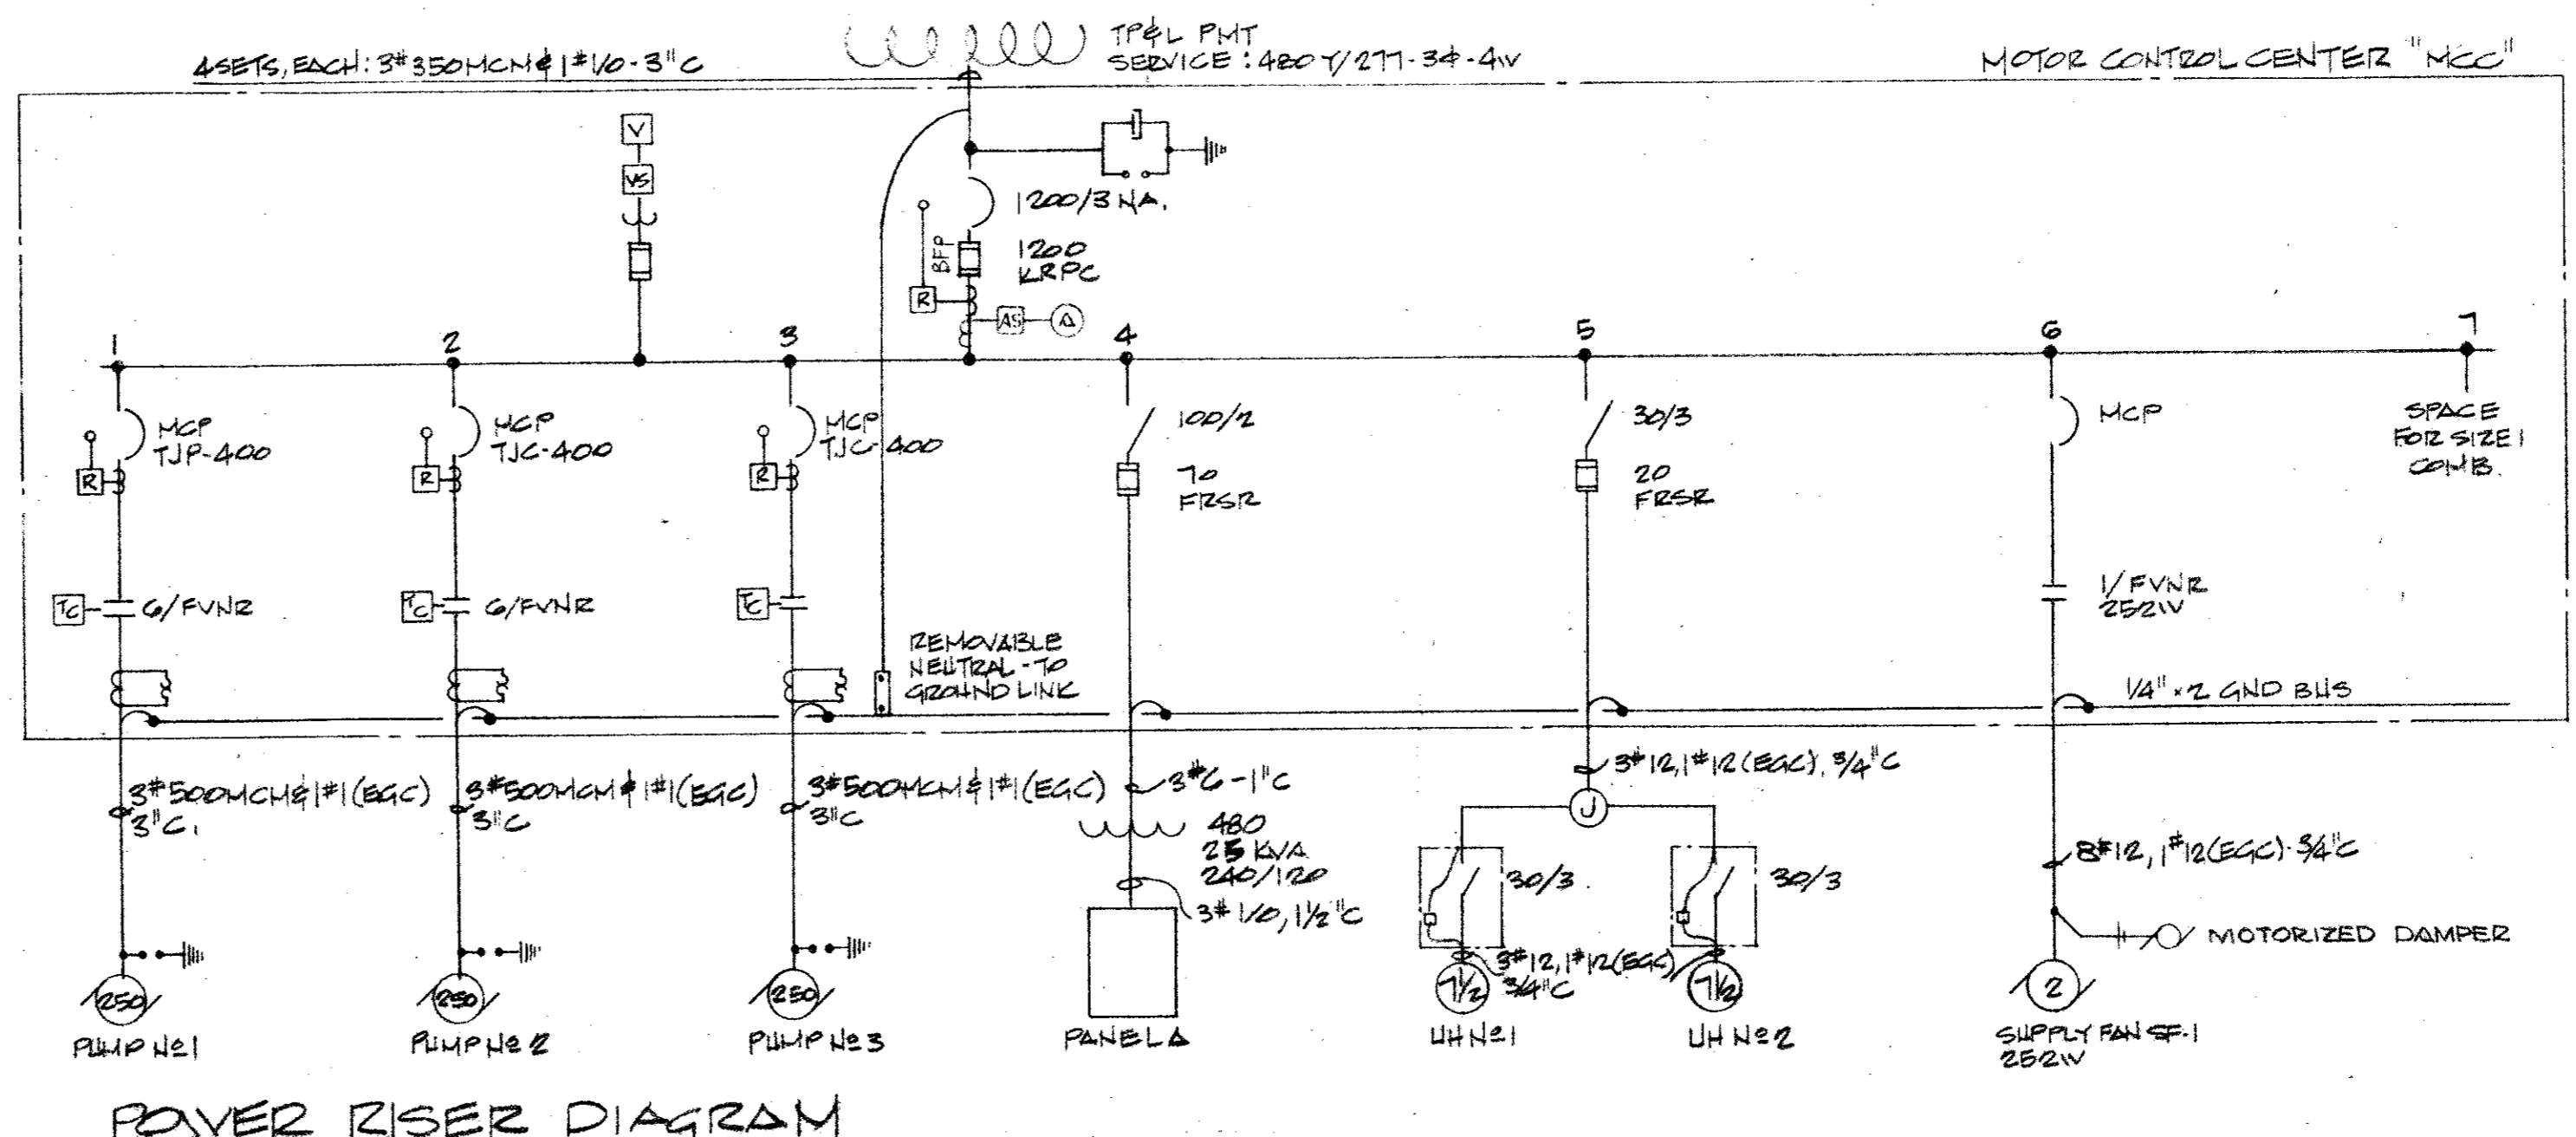 4SETS, EACH: 3#350MCM & 1#1/0-3"C
TP&L PMT
SERVICE: 480Y/277-3φ-4W
MOTOR CONTROL CENTER "MCC"
V
VS
1200/3 NA.
BFP
1200
KRPC
R
AS
A
1
2
3
4
5
6
7
MCP
TJP-400
R
MCP
TJC-400
R
MCP
TJC-400
R
100/2
70
FRSR
30/3
20
FRSR
MCP
SPACE
FOR SIZE 1
COMB.
TC
6/FVNR
TC
6/FVNR
TC
1/FVNR
252W
REMOVABLE
NEUTRAL-TO
GROUND LINK
1/4"x2 GND BUS
3#500MCM & 1#1(EGC)
3"C.
3#500MCM & 1#1(EGC)
3"C
3#500MCM & 1#1(EGC)
3"C
3#6-1"C
480
25 KVA
240/120
3#1/0, 1 1/2"C
3#12, 1#12(EGC), 3/4"C
J
30/3
30/3
3#12, 1#12(EGC)
3/4"C
8#12, 1#12(EGC)-3/4"C
MOTORIZED DAMPER
250
PUMP No 1
250
PUMP No 2
250
PUMP No 3
PANEL A
7 1/2
UH No 1
7 1/2
UH No 2
2
SUPPLY FAN SF-1
252W
POWER RISER DIAGRAM